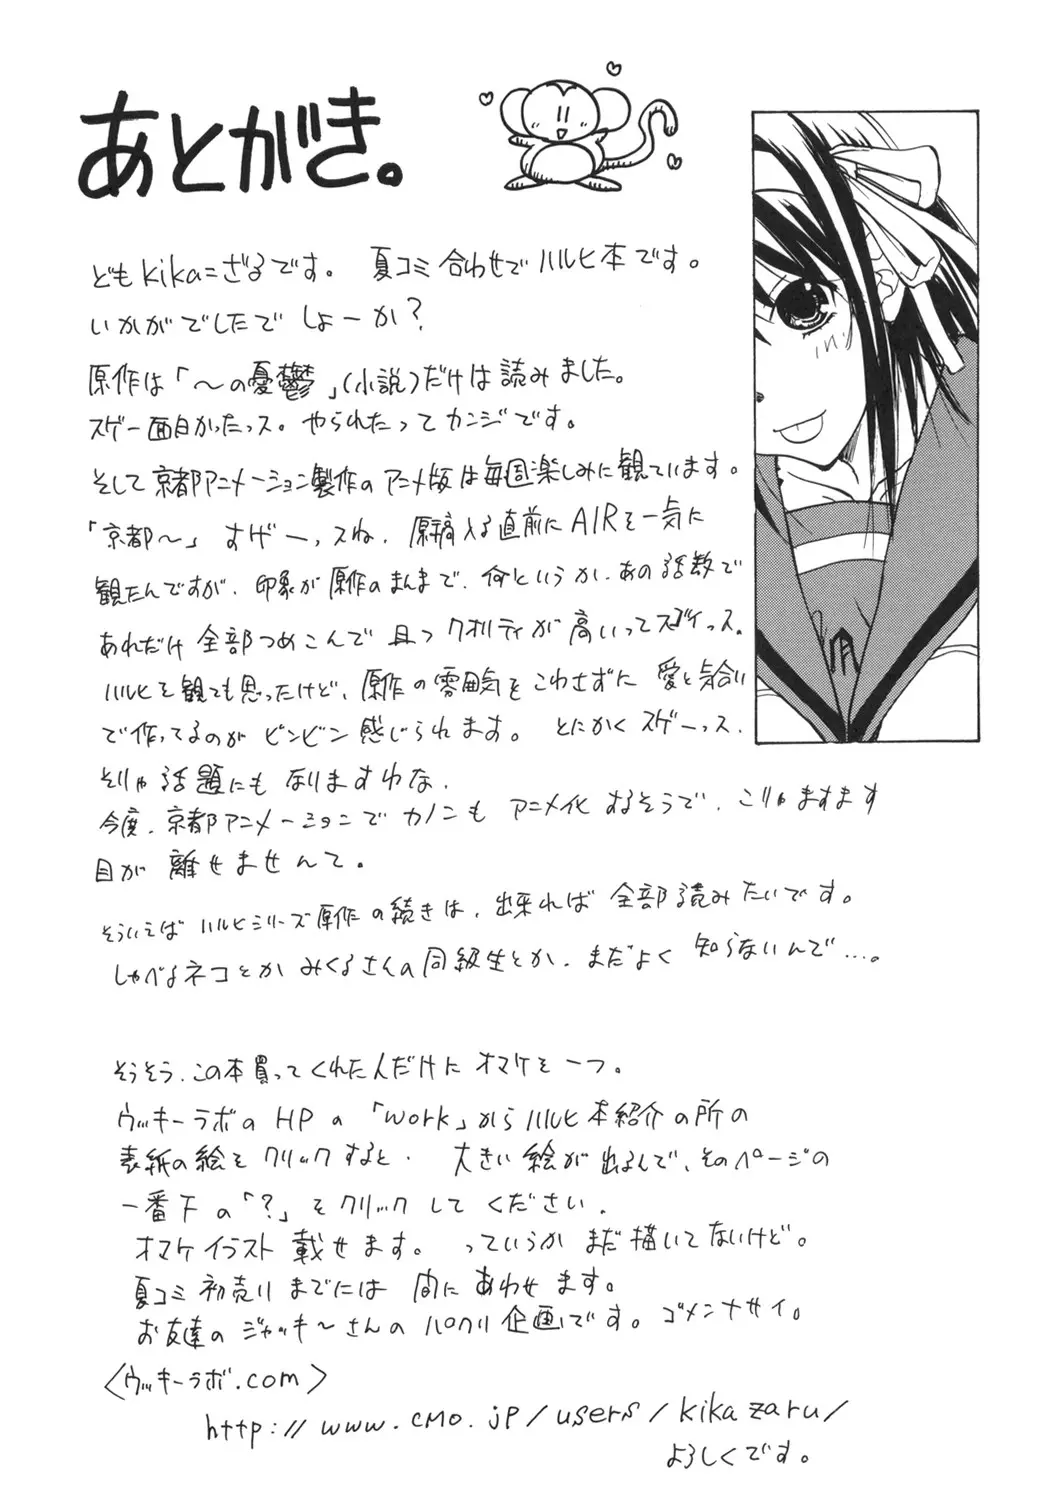 あとがき。
どもkikaこざるです。 夏コミ合わせでハルヒ本です。
いかがでしたでしょーか？
原作は「～の憂鬱」(小説)だけは読みました。
スゲー面白かったっス。やられたってカンジです。
そして京都アニメーション製作のアニメ版は毎週楽しみに観ています。
「京都～」すげーっスね、原稿入る直前にAIRを一気に
観たんですが、印象が原作のまんまで、何というか、あの話数で
あれだけ全部つめこんで且つクオリティが高いってスゴイっス。
ハルヒを観ても思ったけど、原作の雰囲気をこわさずに愛と気合い
で作ってるのがビンビン感じられます。 とにかくスゲーっス、
そりゃ話題にもなりますわな、
今度、京都アニメーションでカノンもアニメ化するそうで、こりゃますます
目が離せませんて。
そういえばハルヒシリーズ原作の続きは、出来れば全部読みたいです。
しゃべるネコとかみくるさんの同級生とか、まだよく知らないんで…。
そうそう、この本買ってくれた人だけにオマケを一つ。
ウッキーラボのHPの「work」からハルヒ本紹介の所の
表紙の絵をクリックすると、 大きい絵が出るんで、そのページの
一番下の「？」をクリックしてください、
オマケイラスト載せます。 っていうかまだ描いてないけど。
夏コミ初売りまでには間にあわせます。
お友達のジャッキ～さんのパクリ企画です。ゴメンナサイ。
〈ウッキーラボ.com〉
http://www.cmo.jp/users/kikazaru/
よろしくです。